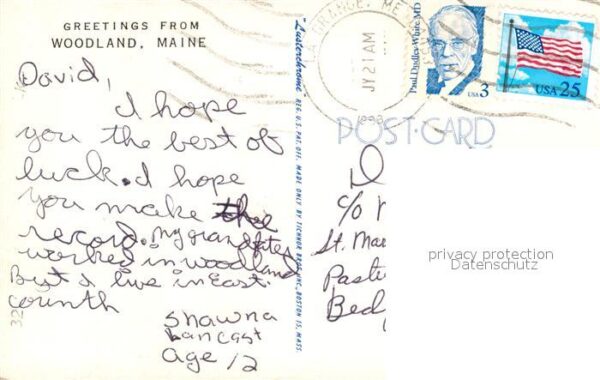 GREETINGS FROM
WOODLAND, MAINE
David,
I hope
you the best of
luck. I hope
you make the
record. My grandfather
worked in woodland
But I live in East.
corinth
Shawna
Lancast
age 12
"Lusterchrome" REG. U.S. PAT. OFF. MADE ONLY BY TICHNOR BROS., INC., BOSTON 15, MASS.
LA GRANGE, ME
JY 21 AM
Paul Dudley White MD
USA 3
USA 25
POST CARD
D
c/o
St. Mar
Paste
Bed
privacy protection
Datenschutz